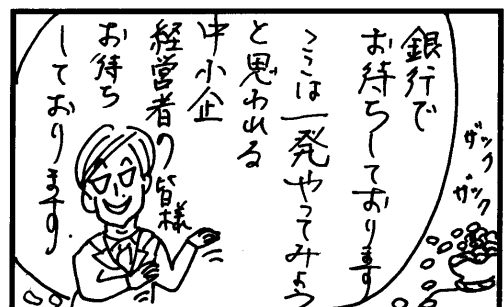 銀行で
お待ちしております
ここは一発やってみよう
と思われる
中小企
経営者の皆様
お待ち
しております。
ザック
ザック